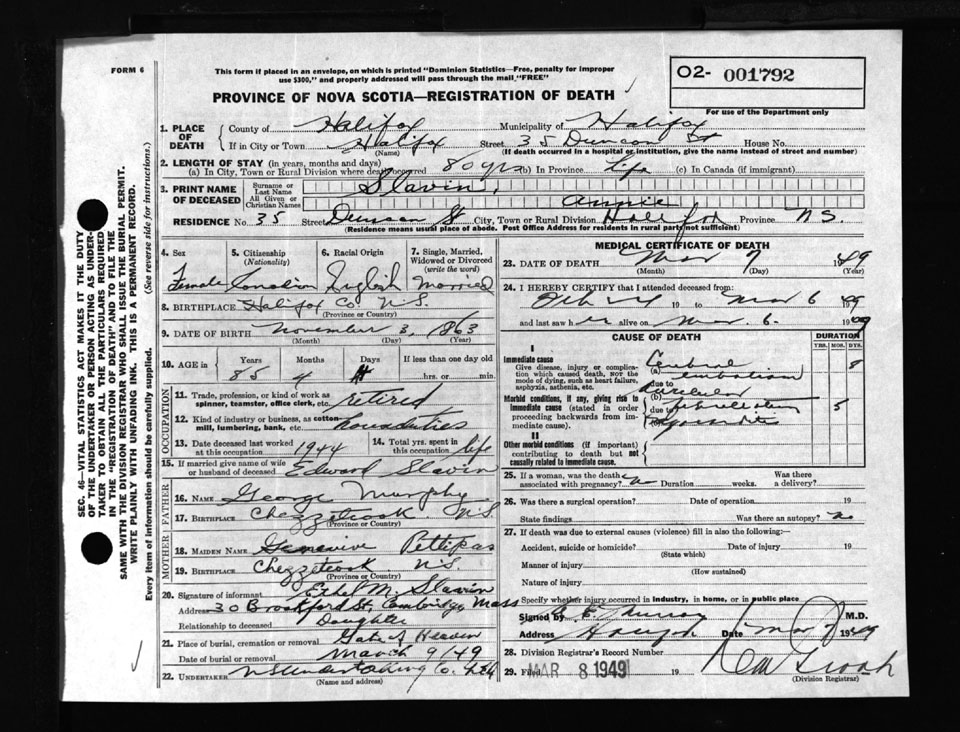 FORM 6
This form if placed in an envelope, on which is printed "Dominion Statistics—Free, penalty for improper
use $300," and properly addressed will pass through the mail "FREE"
O2- 001792
PROVINCE OF NOVA SCOTIA—REGISTRATION OF DEATH
For use of the Department only
SEC. 46—VITAL STATISTICS ACT MAKES IT THE DUTY
OF THE UNDERTAKER OR PERSON ACTING AS UNDER-
TAKER TO OBTAIN ALL THE PARTICULARS REQUIRED
IN THE "REGISTRATION OF DEATH" AND TO FILE THE
SAME WITH THE DIVISION REGISTRAR WHO SHALL ISSUE THE BURIAL PERMIT.
WRITE PLAINLY WITH UNFADING INK. THIS IS A PERMANENT RECORD.
Every item of information should be carefully supplied. (See reverse side for instructions.)
1. PLACE OF DEATH County of Halifax Municipality of Halifax
If in City or Town Halifax Street 35 Duncan St House No.
(Name) (If death occurred in a hospital or institution, give the name instead of street and number)
2. LENGTH OF STAY (in years, months and days)
(a) In City, Town or Rural Division where death occurred 80 yrs (b) In Province Life (c) In Canada (if immigrant)
3. PRINT NAME OF DECEASED Surname or Last Name Slavin,
All Given or Christian Names Annie
RESIDENCE No. 35 Street Duncan St City, Town or Rural Division Halifax Province N.S.
(Residence means usual place of abode. Post Office Address for residents in rural parts not sufficient)
4. Sex 5. Citizenship (Nationality) 6. Racial Origin 7. Single, Married, Widowed or Divorced (write the word)
Female Canadian English Married
8. BIRTHPLACE Halifax Co. N.S.
(Province or Country)
9. DATE OF BIRTH November 3, 1863
(Month) (Day) (Year)
10. AGE in Years Months Days If less than one day old
85 4 hrs. or min.
OCCUPATION
11. Trade, profession, or kind of work as spinner, teamster, office clerk, etc. retired
12. Kind of industry or business, as cotton-mill, lumbering, bank, etc. houseduties
13. Date deceased last worked at this occupation 1944 14. Total yrs. spent in this occupation life
15. If married give name of wife or husband of deceased Edward Slavin
FATHER
16. NAME George Murphy
17. BIRTHPLACE Chezzetcook N.S.
(Province or Country)
MOTHER
18. MAIDEN NAME Genevive Pettipas
19. BIRTHPLACE Chezzetcook N.S.
(Province or Country)
20. Signature of informant Ethel M. Slavin
Address 30 Brookford St, Cambridge, Mass
Relationship to deceased Daughter
21. Place of burial, cremation or removal Gate of Heaven
Date of burial or removal March 9/49
22. UNDERTAKER N S Undertaking Co.
(Name and address)
MEDICAL CERTIFICATE OF DEATH
23. DATE OF DEATH Mar 7 1949
(Month) (Day) (Year)
24. I HEREBY CERTIFY that I attended deceased from:
19 to Mar 6 1949
and last saw her alive on Mar. 6. 1949
CAUSE OF DEATH DURATION
YRS. MOS. DYS.
I
Immediate cause
Give disease, injury or complication which caused death, NOT the mode of dying, such as heart failure, asphyxia, asthenia, etc.
(a) Cerebral embolism 8
due to
Morbid conditions, if any, giving rise to immediate cause (stated in order proceeding backwards from immediate cause).
(b) Auricular
due to fibrillation 5
(c) Myocarditis
II
Other morbid conditions (if important) contributing to death but not causally related to immediate cause.
25. If a woman, was the death associated with pregnancy? no Duration weeks. Was there a delivery?
26. Was there a surgical operation? Date of operation 19
State findings Was there an autopsy? no
27. If death was due to external causes (violence) fill in also the following:
Accident, suicide or homicide? Date of injury 19
(State which)
Manner of injury
(How sustained)
Nature of injury
Specify whether injury occurred in industry, in home, or in public place
Signed by E. Murray M.D.
Address Halifax Date Mar 7 1949
28. Division Registrar's Record Number
29. Filed MAR 8 1949 19
(Division Registrar)